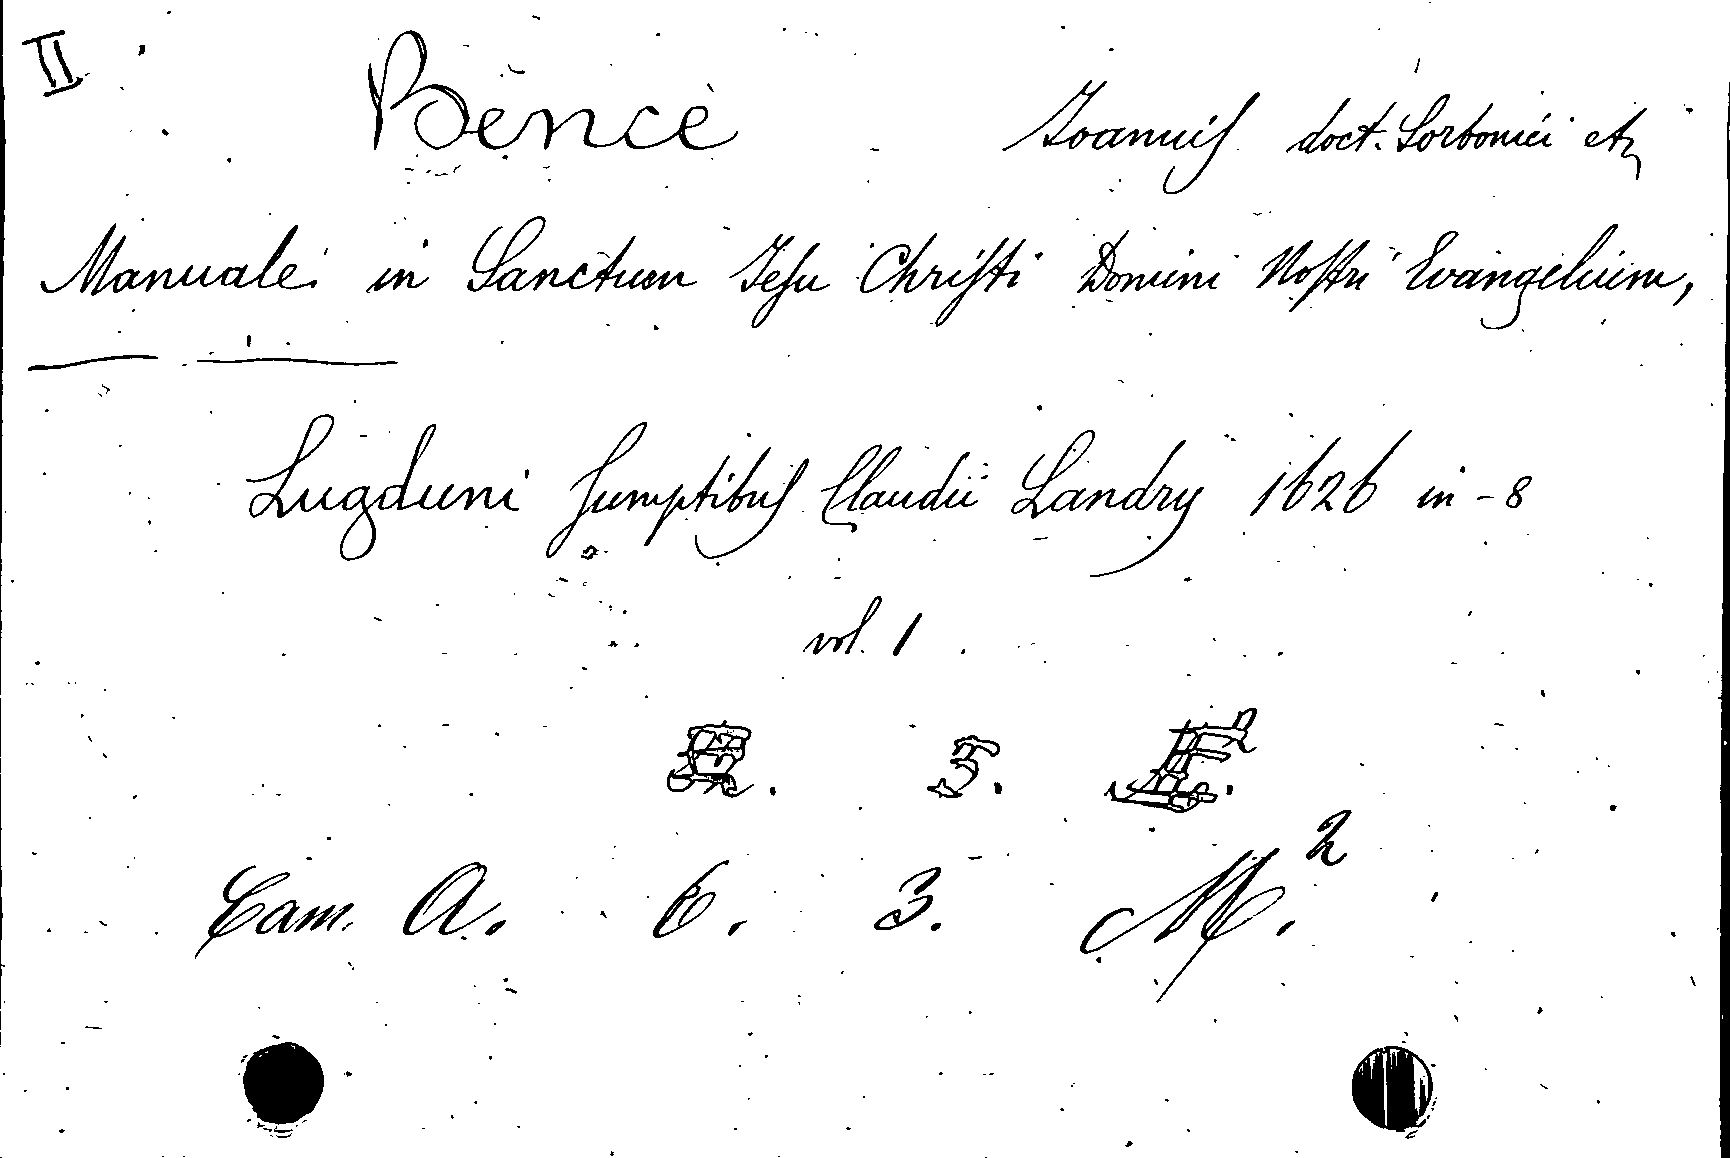 II
Bence Joannis doct. Sorbonici etc
Manuale in Sanctum Jesu Christi Domini Nostri Evangelium,
Lugduni sumptibus Claudii Landry 1626 in-8
vol. 1
3.
Cam. A. 6. 3. M.2